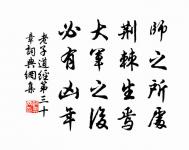 師之所處
荊棘生焉
大軍之後
必有凶年
老子道經第三十
章詞典網集